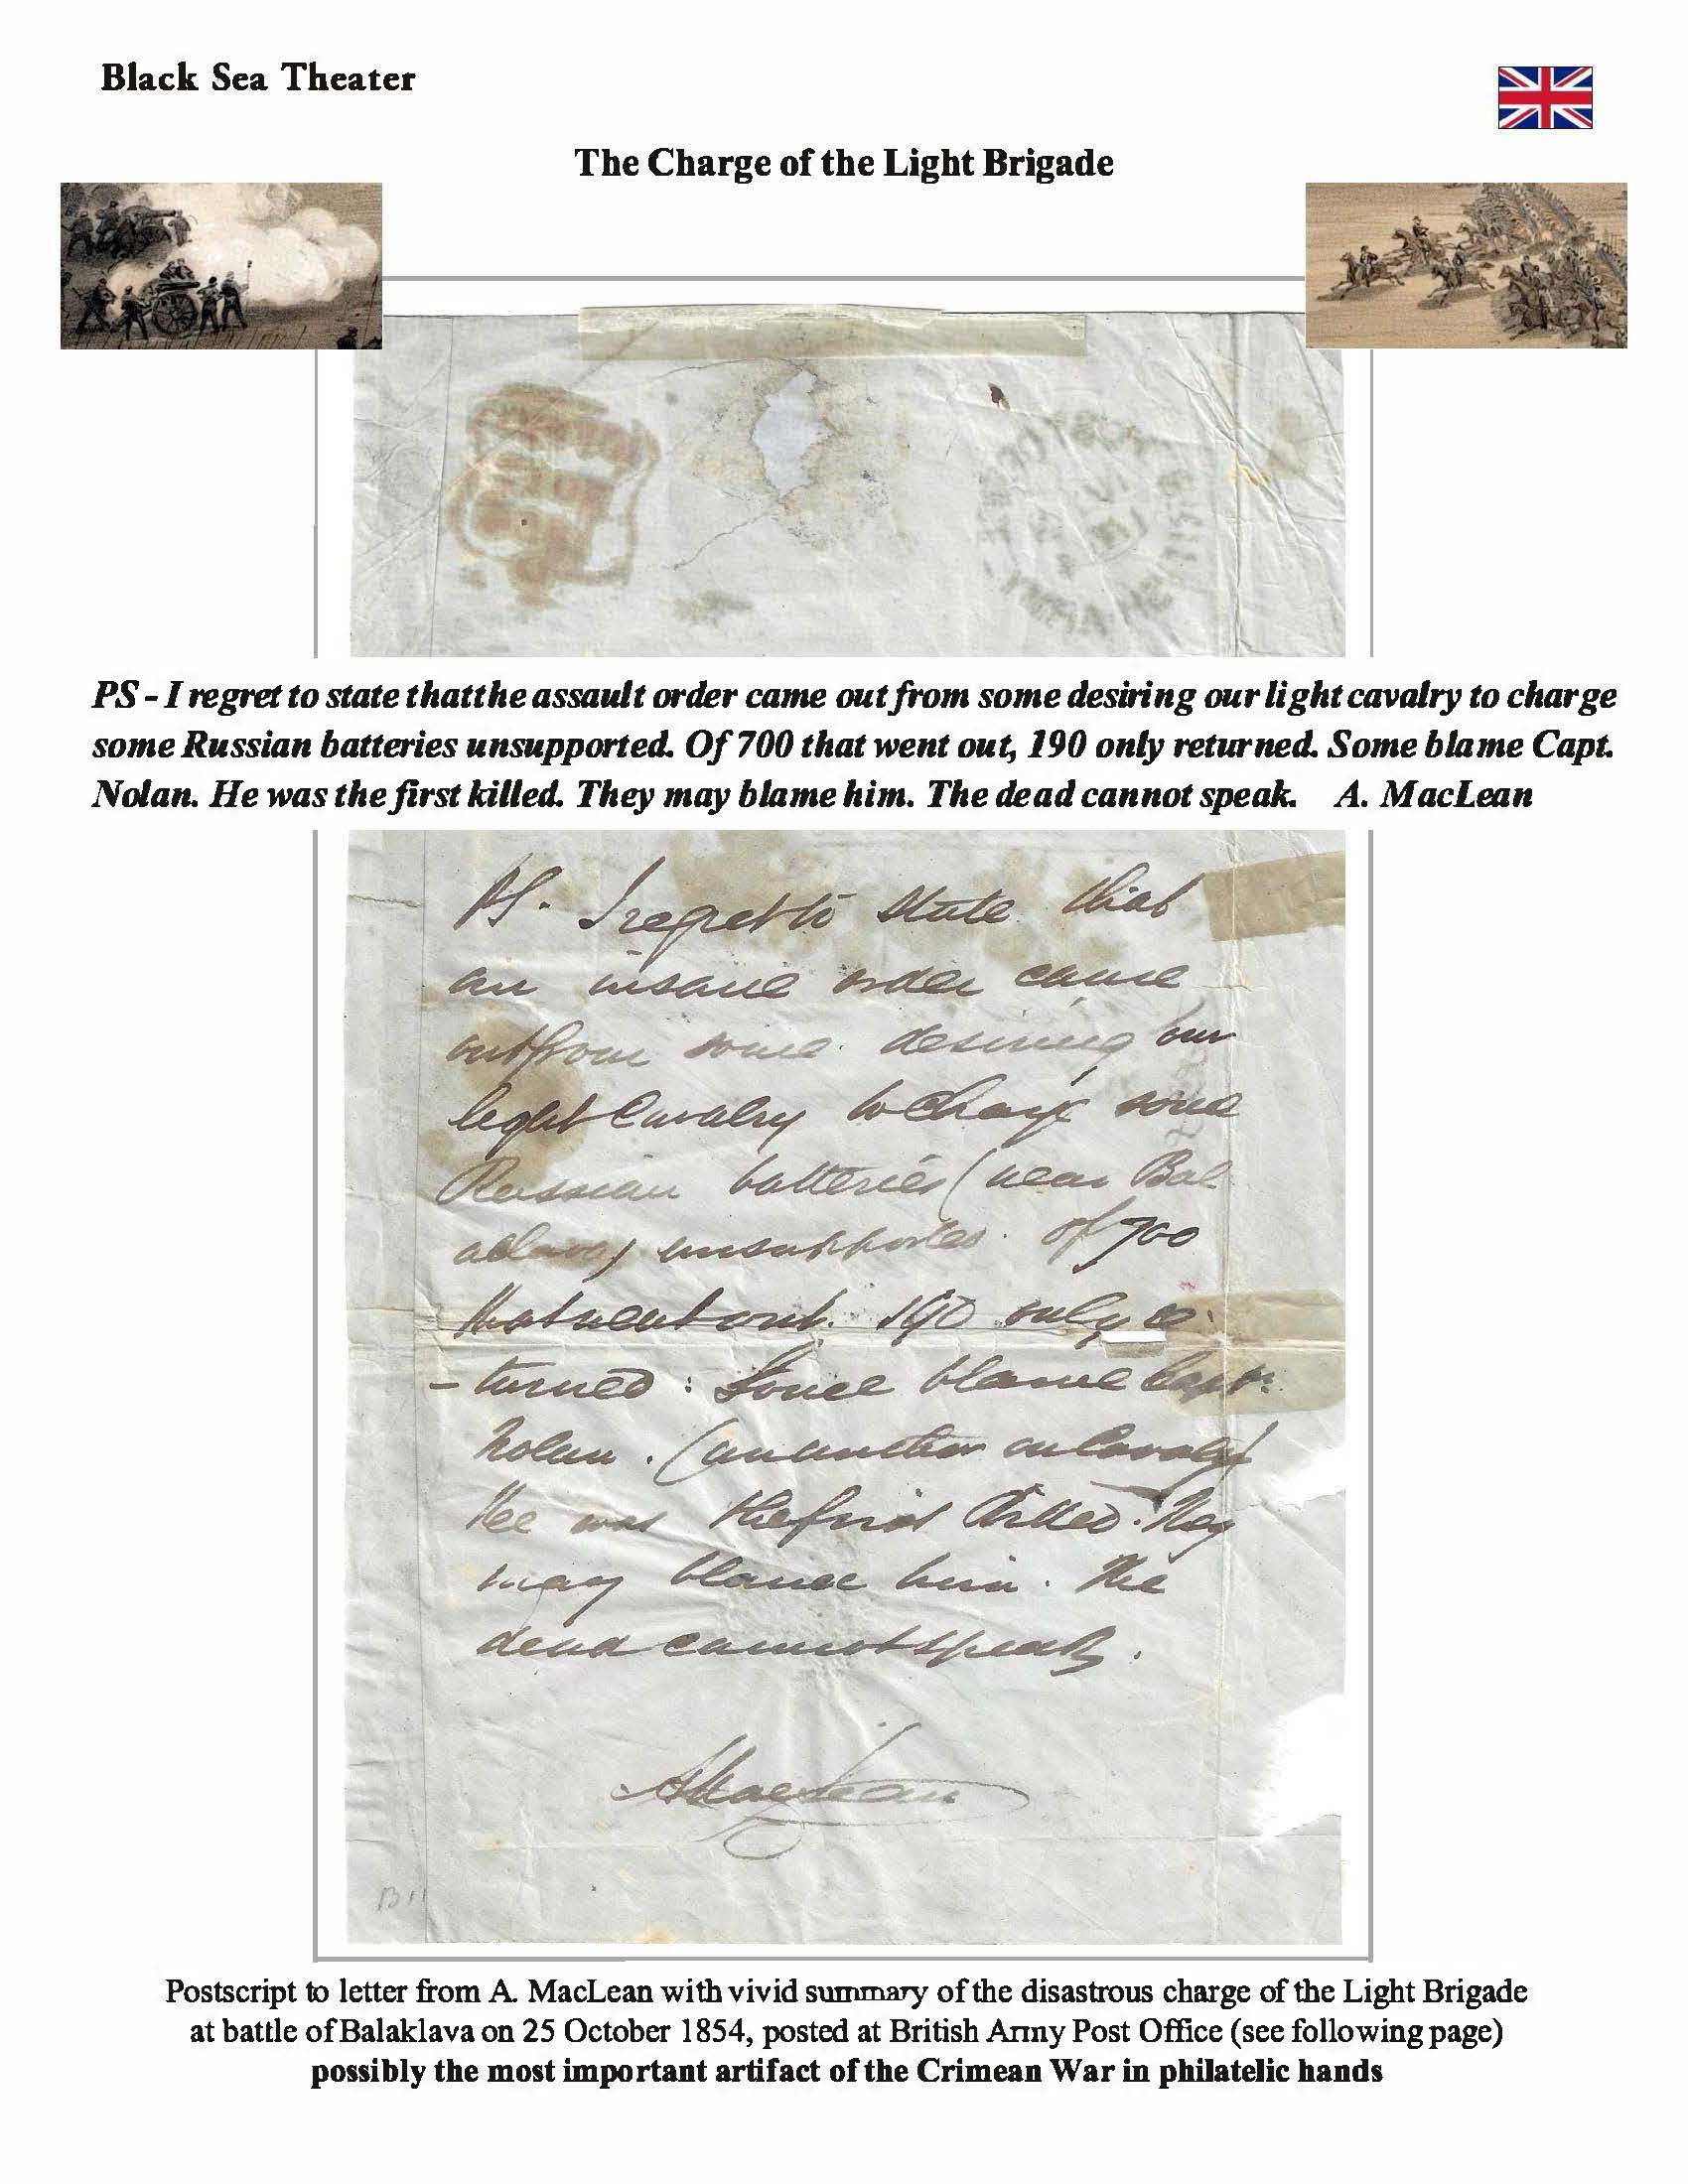 Black Sea Theater
The Charge of the Light Brigade
PS - I regret to state that the assault order came out from some desiring our light cavalry to charge
some Russian batteries unsupported. Of 700 that went out, 190 only returned. Some blame Capt.
Nolan. He was the first killed. They may blame him. The dead cannot speak. A. MacLean
PS. I regret to state that
an insane order came
out from some desiring our
light Cavalry to Charge some
Russian batteries (near Bal
aclava) unsupported. Of 700
that went out. 190 only re
-turned: Some blame Capt:
Nolan. (an author on Cavalry)
He was the first Killed. They
may blame him. The
dead cannot speak.
AMacLean
B11
Postscript to letter from A. MacLean with vivid summary of the disastrous charge of the Light Brigade
at battle of Balaklava on 25 October 1854, posted at British Army Post Office (see following page)
possibly the most important artifact of the Crimean War in philatelic hands